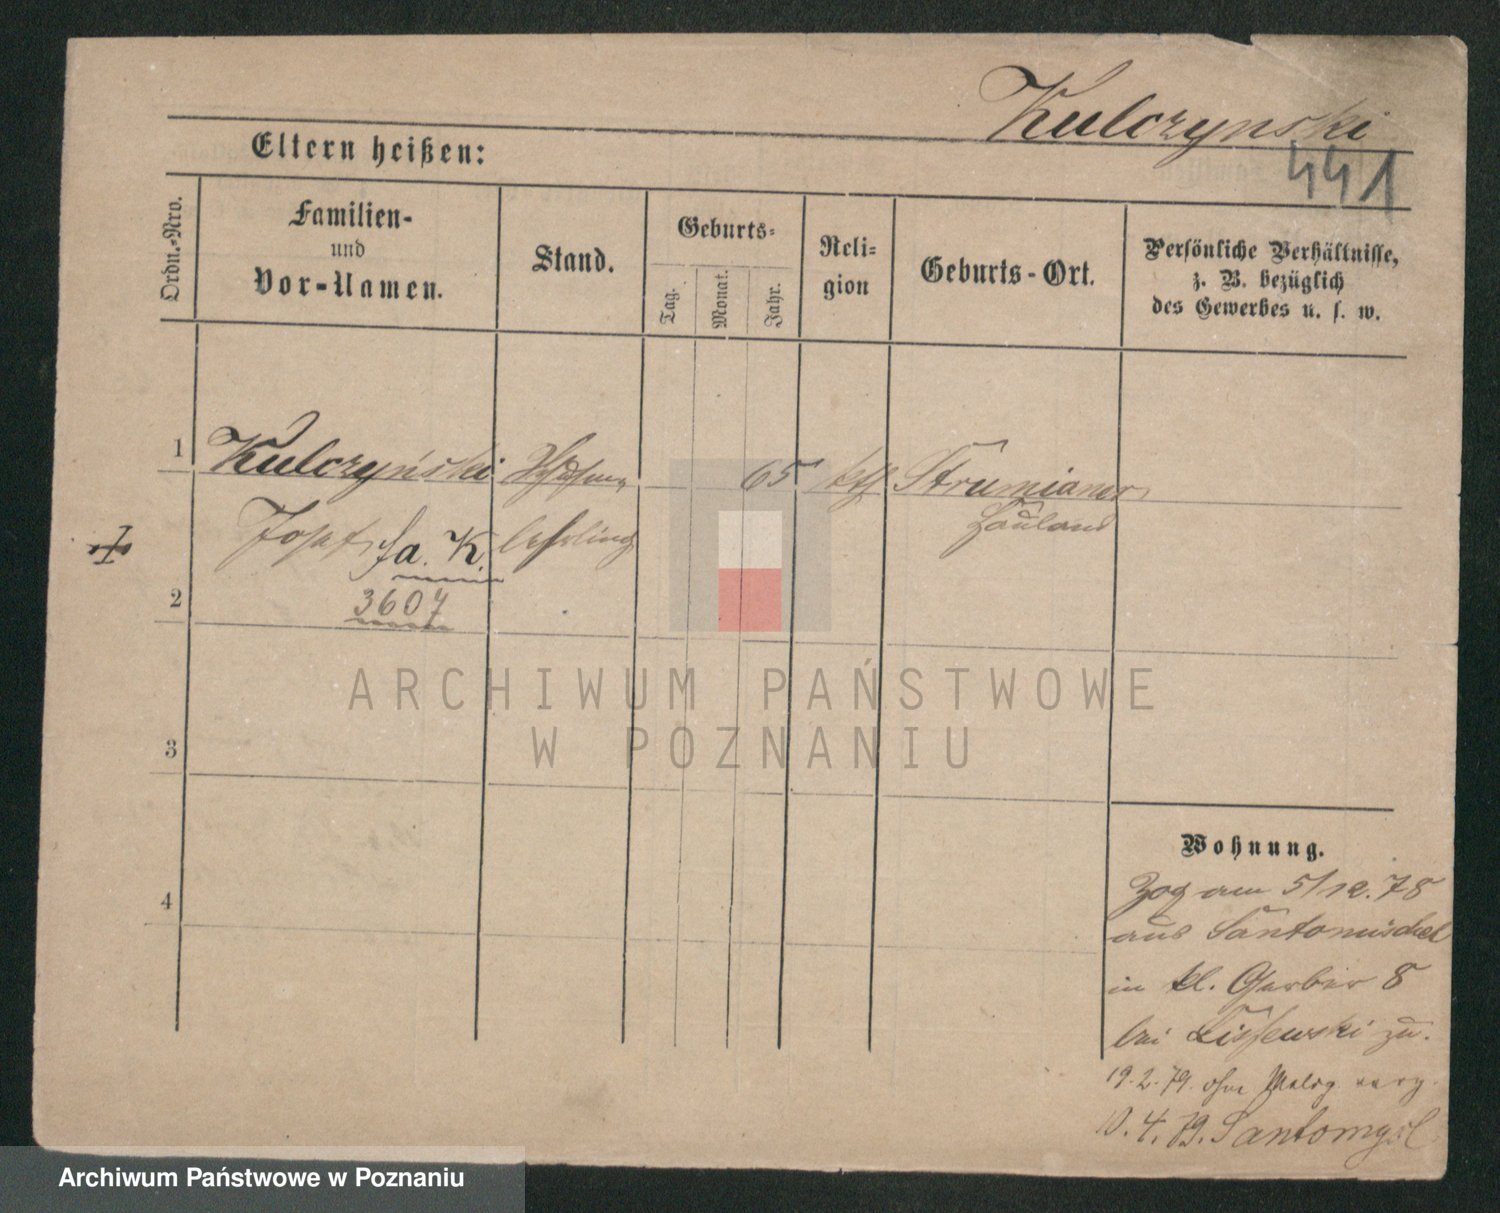 Kulczynski
441
Eltern heißen:
Ordn.-Nro.
Familien-
und
Vor-Namen.
Stand.
Geburts-
Tag.
Monat.
Jahr.
Reli-
gion
Geburts-Ort.
Persönliche Verhältnisse,
z. B. bezüglich
des Gewerbes u. s. w.
1 Kulczyński 65 kth Strumianer
Josef fa. K. lehrling Hauland
3607
2
3
4
Wohnung.
Zog am 5/12.78
aus Santomischel
in kl. Gerber 8
bei Lissewski zu.
19.2.79. ohne
10.4.79. Santomysl
ARCHIWUM PAŃSTWOWE
W POZNANIU
Archiwum Państwowe w Poznaniu